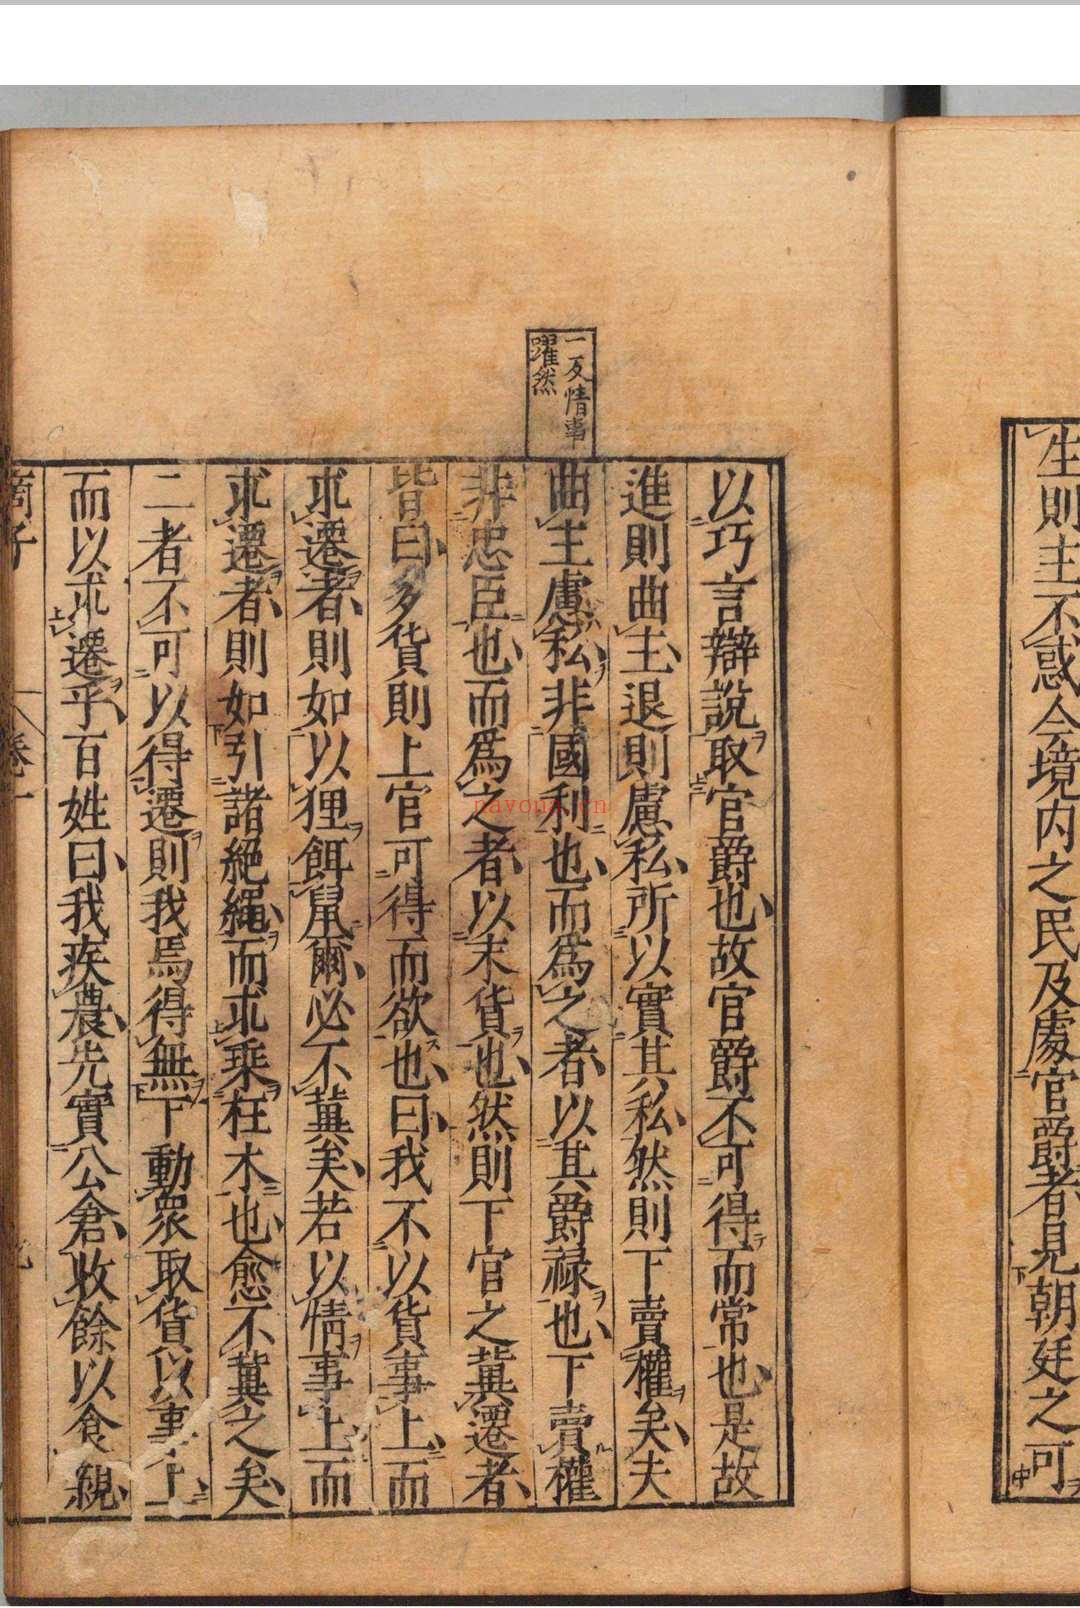 生則主不惑今境內之民及處官爵者見朝廷之可
一反情事
躍然
以巧言辯説取官爵也故官爵不可得而常也是故
進則曲主退則慮私所以實其私然則下賣權矣夫
曲主慮私非國利也而爲之者以其爵祿也下賣權
非忠臣也而爲之者以末貨也然則下官之冀遷者
皆曰多貨則上官可得而欲也曰我不以貨事上而
求遷者則如以狸餌鼠爾必不冀矣若以情事上而
求遷者則如引諸絕繩而求乘枉木也愈不冀之矣
二者不可以得遷則我焉得無下動衆取貨以事上
而以求遷乎百姓曰我疾農先實公倉收餘以食親
商子
卷一
navona.cn